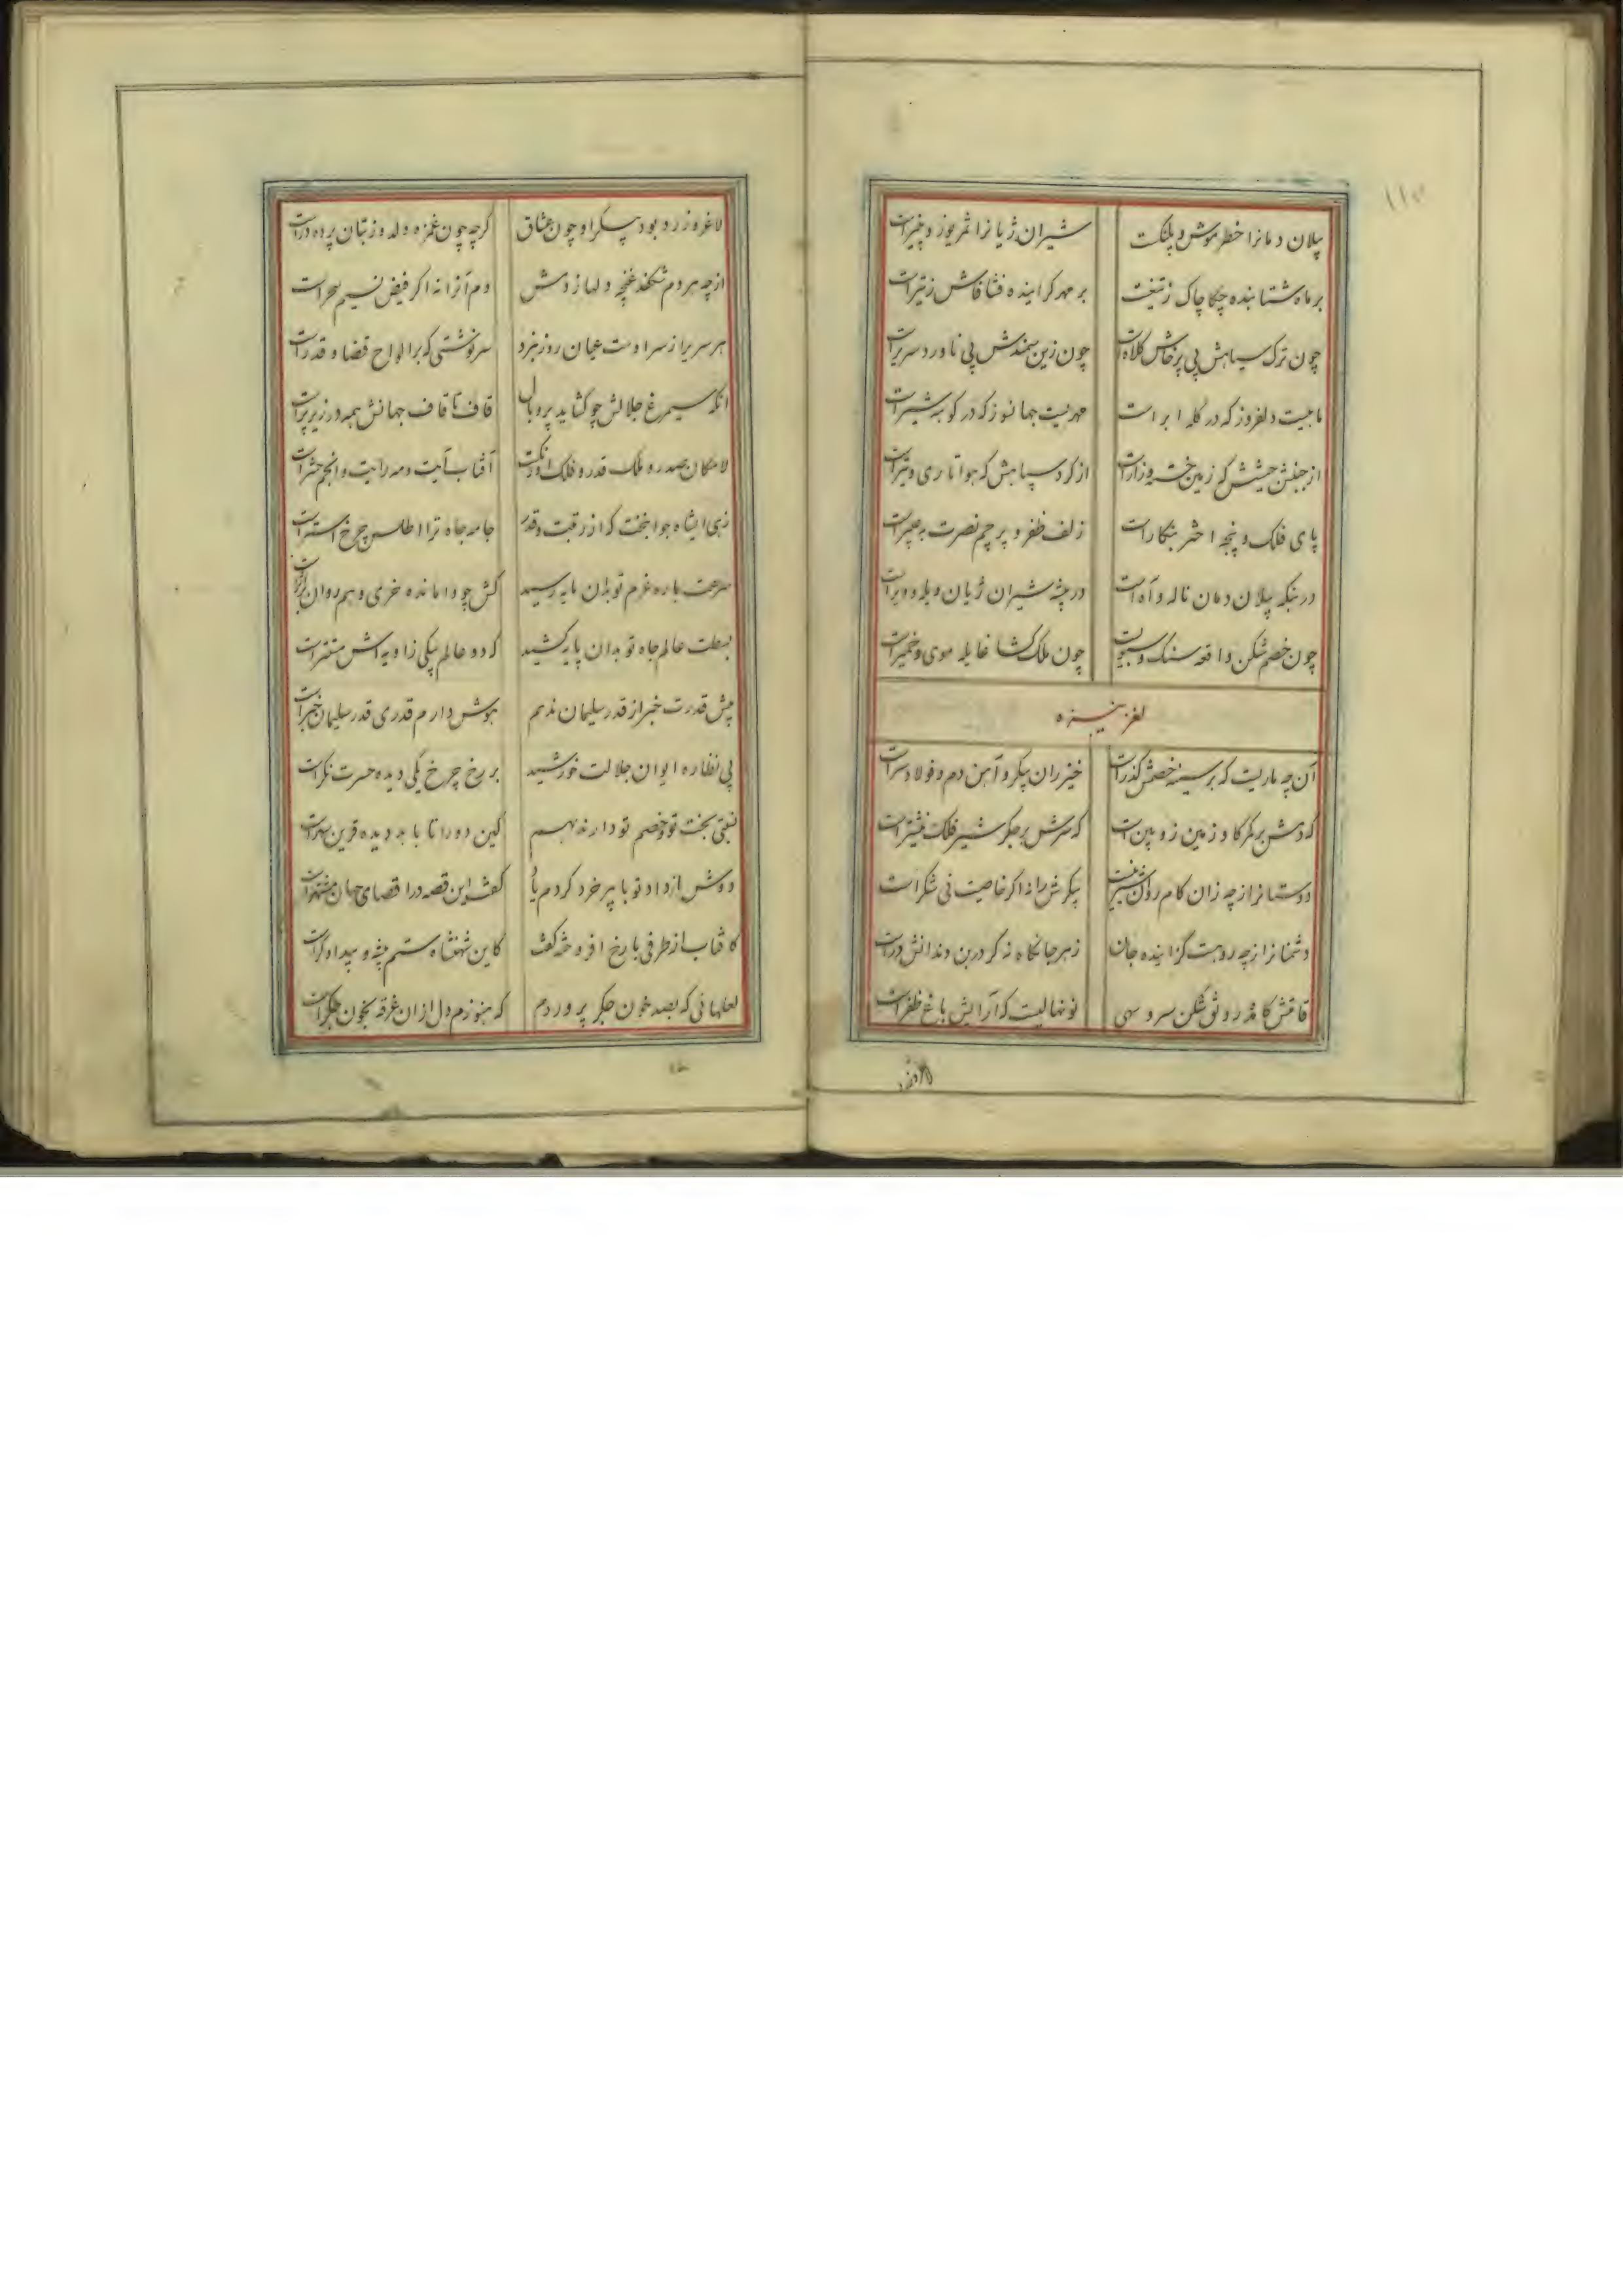 ۱۱۵
پیلان دمانرا خطر موش و پلنکست
شیران ژیانرا
بر ماه شتابنده چکاچاک ز تیغست
بر مهر کراینده فشافاش ز تیراست
چون ترک سپاهش پی پرخاش کلاه است
چون زین سمندش پی ناورد سریراست
ماهیست دلفروز که در کله ابر است
مهریست جهانسوز که در کوبه شیراست
از جنبش جیشش که زمین خسته و زاراست
از کرد سپاهش که هوا تاری و تیراست
پای فلک و پنجه اختر بنکاراست
زلف ظفر و پرچم نصرت به عبیراست
در بنکه پیلان دمان ناله و آه است
در بیشه شیران ژیان ویله و ویراست
چون خصم شکن واقعه سنک و سبویست
چون ملک کشا غایله موی و خمیراست
لغز نیزه
آن چه ماریست که بر سینه خصمش کذراست
خیزران پیکر و آهن دم و فولاد سراست
که دمش بر کمر کاو زمین زوبین است
که سرش بر جکر شیر فلک نیشتراست
دوستانرا ز چه زان کام روان شیرینست
پیکرش را نه اکر خاصیت نی شکراست
دشمنانرا ز چه روهست کزاینده جان
زهر جانکاه نه کر در بن دندانش دراست
قامتش کامد رونق شکن سرو سهی
نونهالیست که آرایش باغ ظفراست
لاغر و زرد بود پیکر او چون عشاق
کرچه چون غمزه دلدوز بتان پرده دراست
از چه هر دم شکفد غنچه دلها ز دمش
دم آنرا نه اکر فیض نسیم سحراست
هر سریرا ز سر اوست عیان روز نبرد
سرنوشتی که بر الواح قضا و قدراست
انکه سیمرغ جلالش چو کشاید پر و بال
قاف تا قاف جهانش همه در زیر پراست
لامکان صدر و ملک قدر و فلک اورنکست
آفتاب آیت و مه رایت و انجم حشراست
زهی ایشاه جوانبخت که از رقبت و قدر
جامه جاه ترا اطلس چرخ استراست
سرعت باره عزم تو بدان مایه رسید
کش چو وامانده خری وهم روان براثراست
بسطت عالم جاه تو بدان پایه کشید
که دو عالم بیکی زاویه اش مستتراست
پیش قدرت خبر از قدر سلیمان ندهم
هوش دارم قدری قدر سلیمان خبراست
پی نظاره ایوان جلالت خورشید
بر رخ چرخ یکی دیده حسرت نکراست
بخت تو و خصم تو دارند بهم
کین دو را تا با بد دیده قرین سهراست
دوش از داد تو با پیر خرد کردم یاد
کفت این قصه در اقصای جهان مشتهراست
کافتاب از طرفی با رخ افروخته کفت
کاین شهنشاه ستم پیشه و بیدادکراست
لعلهائی که بصد خون جکر پروردم
که هنوزم دل از ان غرقه بخون جکراست